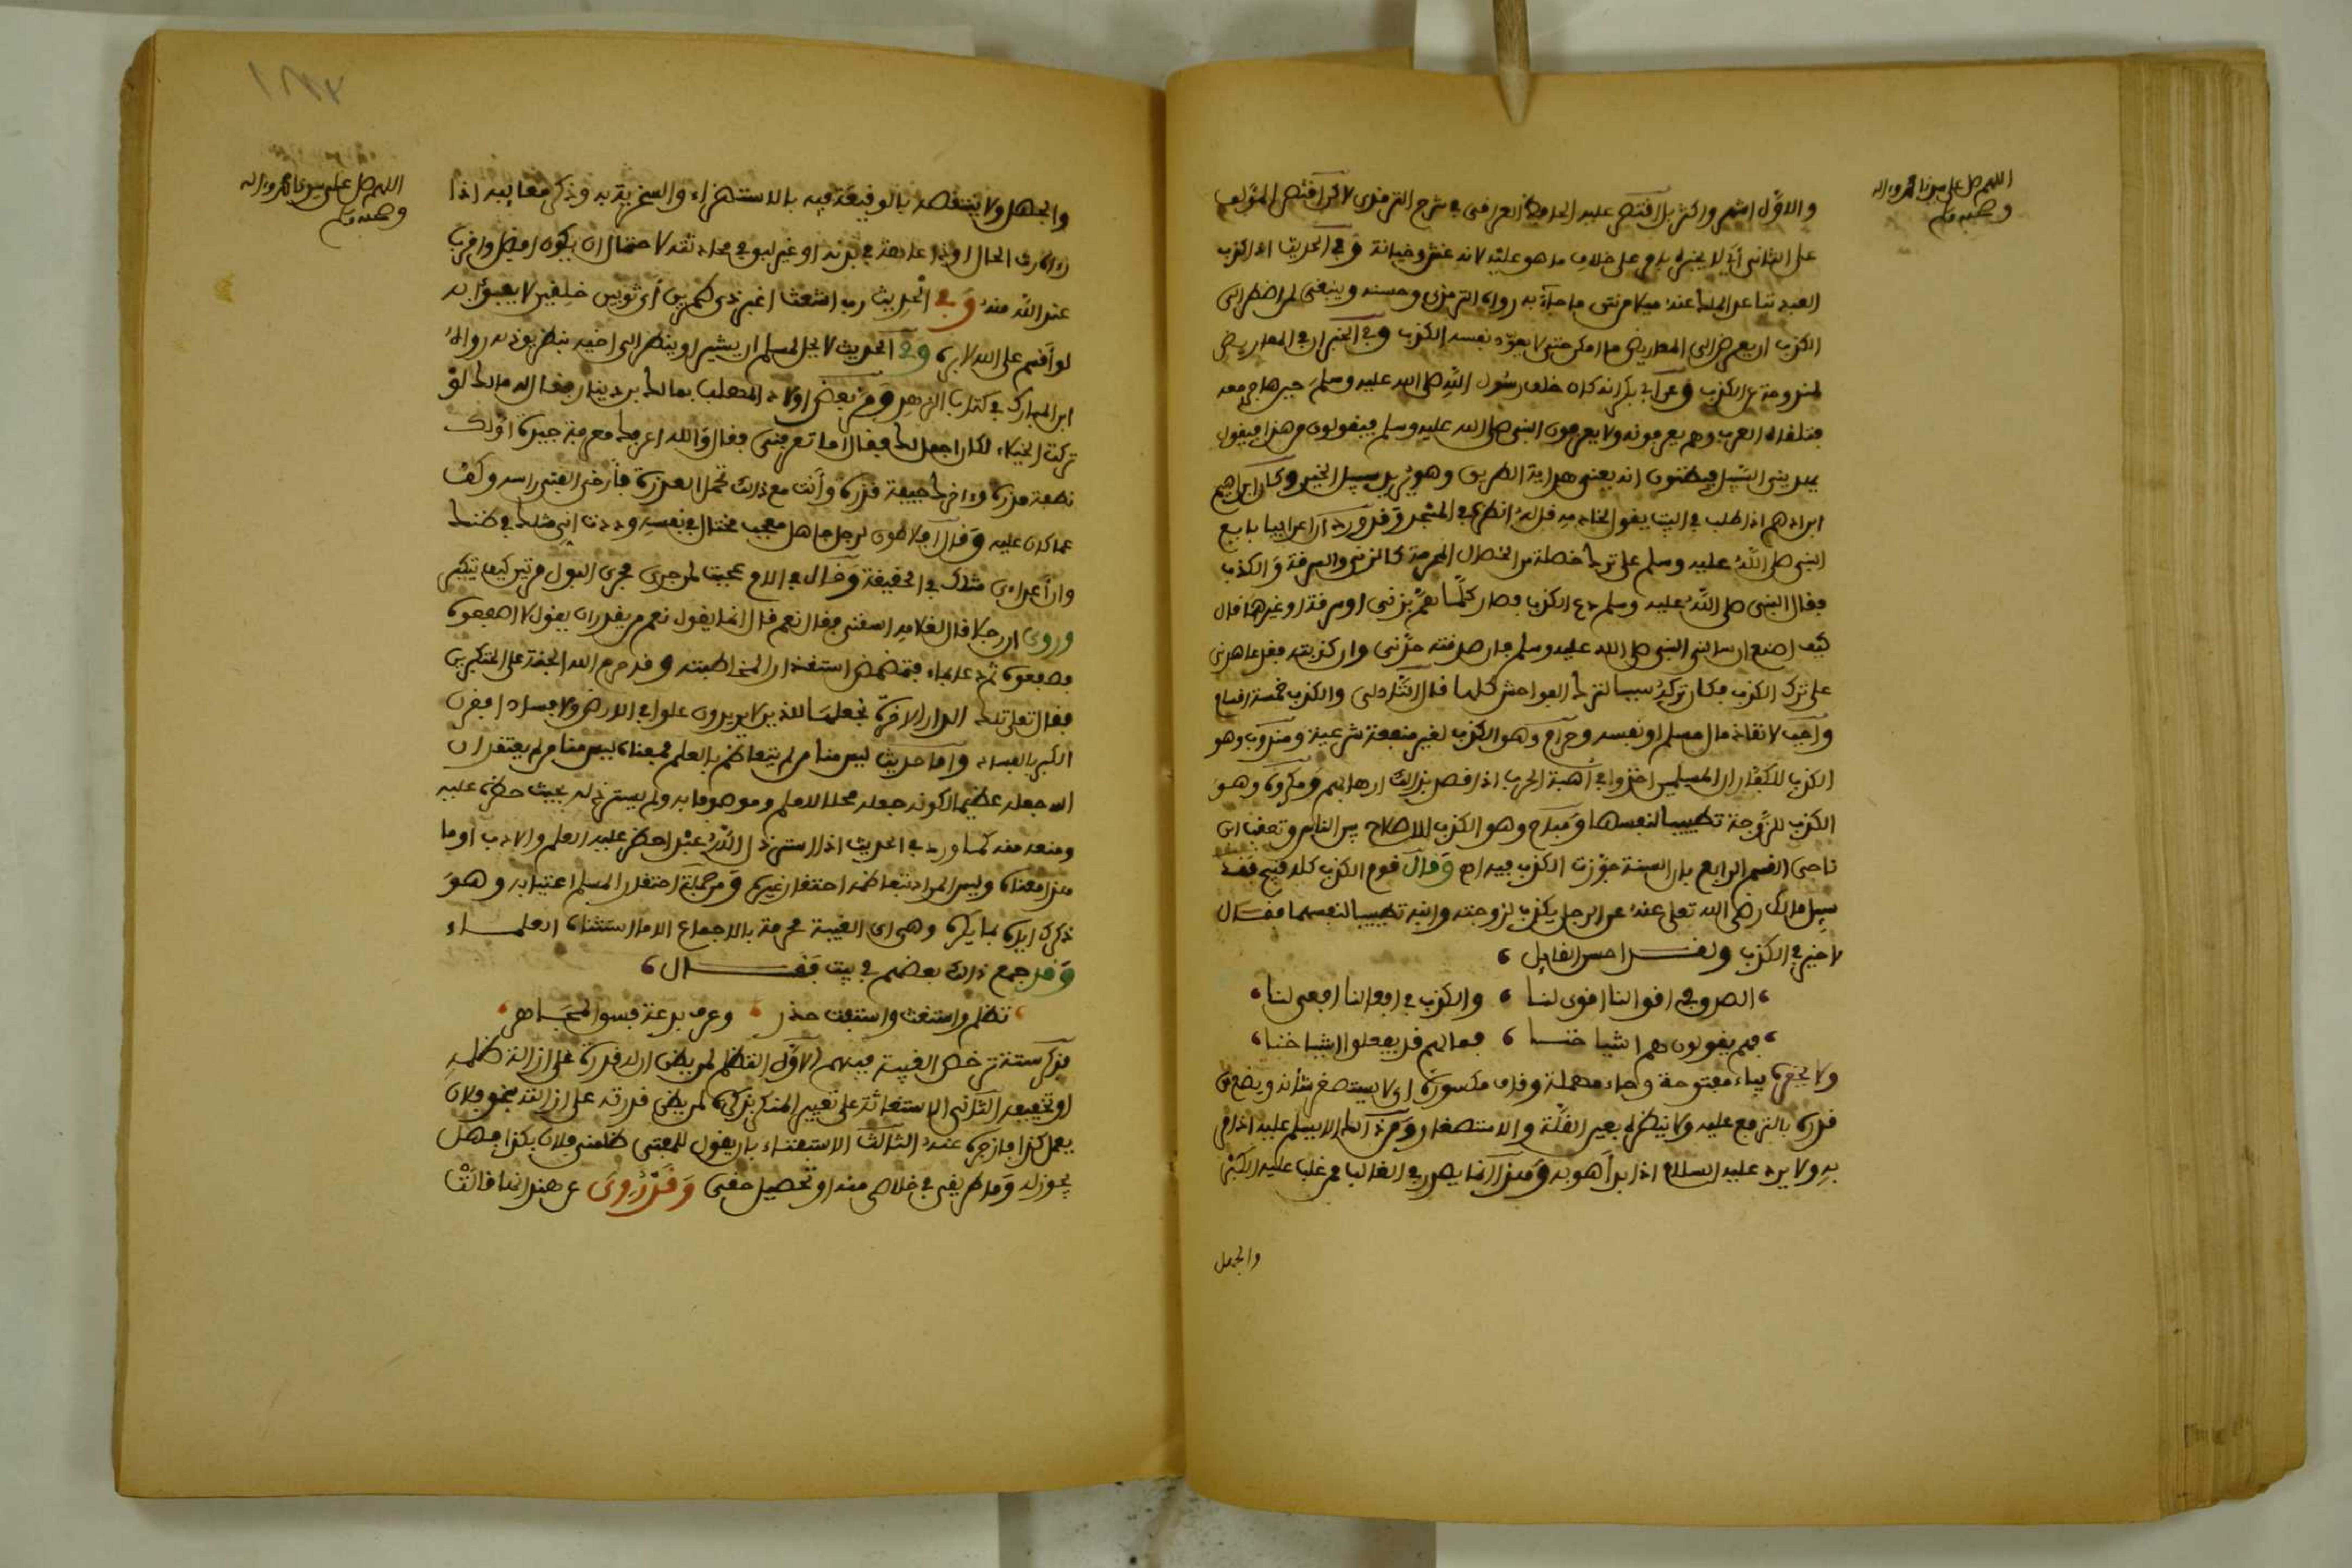 اللهم صل على سيدنا محمد وءاله
وصحبه وسلم
والاول اشهر واكثر بل اقتصر عليه الحافظ العراقي في شرح الترمذي لاكن اقتصر المؤلف
على الثاني أي لا يخبره بامر على خلاف ما هو عليه لانه غش وخيانة وفي الحديث اذا كذب
العبد تباعد الملك عنه ميلا من نتن ما جاء به رواه الترمذي وحسنه وينبغي لمن اضطر الى
الكذب ان يعرض الى المعاريض ما امكن حتى لا يعود نفسه الكذب وفي الخبر ان في المعاريض
لمندوحة عن الكذب وعن ابي بكر انه كان خلف رسول الله صلى الله عليه وسلم حين هاجر معه
فتلقاه العرب وهم يعرفونه ولا يعرفون النبي صلى الله عليه وسلم فيقولون من هذا فيقول
يهديني السبيل فيظنون انه يعني هداية الطريق وهو يريد سبيل الخير وكان ابراهيم
ابن ادهم اذا طلب في البيت يقول لخادمه قل له انظره في المسجد وقد ورد ان اعرابيا بايع
النبي صلى الله عليه وسلم على ترك خصلة من الخصال المحرمة كالزنى والسرقة والكذب
فقال النبي صلى الله عليه وسلم دع الكذب فصار كلما هم بزنى او سرقة او غيرها قال
كيف اصنع ان سالني النبي صلى الله عليه وسلم فان صدقته حدني وان كذبته فقد عاهدني
على ترك الكذب فكان تركه سببا لترك الفواحش كلها قال التادلي والكذب خمسة اقسام
واجب لانقاذ مال مسلم او نفسه وحرام وهو الكذب لغير منفعة شرعية ومندوب وهو
الكذب للكفار ان المسلمين اخذوا في أهبة الحرب اذا قصد بذلك ارهابهم ومكروه وهو
الكذب للزوجة تطييبا لنفسها ومباح وهو الكذب للاصلاح بين الناس وتعقب ابن
ناجي القسم الرابع بان السنة جوزت الكذب فيه اه وقال قوم الكذب كله قبيح فقد
سيل مالك رضي الله تعلى عنه عن الرجل يكذب لزوجته وابنه تطييبا لنفسهما فقال
لا خير في الكذب ولقد احسن القايل
الصدق في اقوالنا اقوى لنا والكذب في افعالنا افعى لنا
فهم يقولون هم اشياخنا فما لهم قد يفعلوا اشياخنا
ولا يحقره بياء مفتوحة وحاء مهملة وقاف مكسورة اي لا يستصغر شأنه ويضع من
قدره بالترفع عليه ولا ينظره بعين القلة والاستصغار ومن ذلك ان لا يسلم عليه اذا مر
به ولا يرد عليه السلام اذا بدأ هو به وهذا انما يصدر في الغالب ممن غلب عليه الكبر
والجهل
اللهم صل على سيدنا محمد وءاله
وصحبه وسلم
والجهل ولا يتنقصه بالوقيعة فيه بالاستهزاء والسخرية به وذكر معايبه اذا
رءاه رث الحال او ذا عاهة في بدنه او غير لبق في محادثته لاحتمال ان يكون افضل واقرب
عند الله منه وفي الحديث رب اشعث اغبر ذي طمرين أي ثوبين خلقين لا يعبؤ به
لو أقسم على الله لابره وفي الحديث لا يحل لمسلم ان يشير او ينظر الى اخيه بنظر يوذيه رواه
ابن المبارك في كتاب الزهد ومر بعض اولاد المهلب بمالك بن دينار فقال له مالك لو
تركت الخيلاء لكان اجمل لك فقال اما تعرفني فقال والله اعرفك معرفة جيدة اولك
نطفة مذرة وءاخرك جيفة قذرة وأنت مع ذلك تحمل العذرة فأرخى الفتى راسه وكف
عما كان عليه وقال افلاطون لرجل جاهل معجب مختال في نفسه وددت اني مثلك في ظنك
وان أعداءي مثلك في الحقيقة وقال في الام عجبت لمن جرى مجرى البول مرتين كيف يتكبر
وروي ان رجلا قال لغلامه اسقني فقال نعم قال انما يقول نعم من يقدر ان يقول لا اصفعوه
فصفعوه ثم دعا بماء فتمضمض استقذارا لمخاطبته وقد حرم الله الجنة على المتكبرين
فقال تعلى تلك الدار الاخرة نجعلها للذين لا يريدون علوا في الارض ولا فسادا فقرن
الكبر بالفساد واما حديث ليس منا من لم يتعاظم بالعلم فمعناه ليس منا من لم يعتقد ان
الله جعله عظيما لكونه جعله محلا للعلم وموصوفا به ولم يسترذله بحيث حظره عليه
ومنعه منه كما ورد في الحديث اذا استرذل الله عبدا حظر عليه العلم والادب او ما
هذا معناه وليس المراد تعاظمه احتقار غيره ومن جملة احتقار المسلم اغتيابه وهو
ذكرك اياه بما يكره وهي اي الغيبة محرمة بالاجماع الا ما استثناه العلماء
وقد جمع ذلك بعضهم في بيت فقال
تظلم واستغث واستفت حذر وعرف بدعة فسق المجاهر
فذكر ستة ترخص الغيبة فيهم الاول التظلم لمن يظن ان له قدرة على ازالة ظلمه
او تخفيفه الثاني الاستغاثة على تغيير المنكر بذكره لمن يظن قدرته على ازالته بنحو فلان
يعمل كذا فازجره عنه الثالث الاستفتاء بان يقول للمفتي ظلمني فلان بكذا فهل
يجوز له وما طريقي في خلاصي منه او تحصيل حقي وقد روي عن هند انها قالت